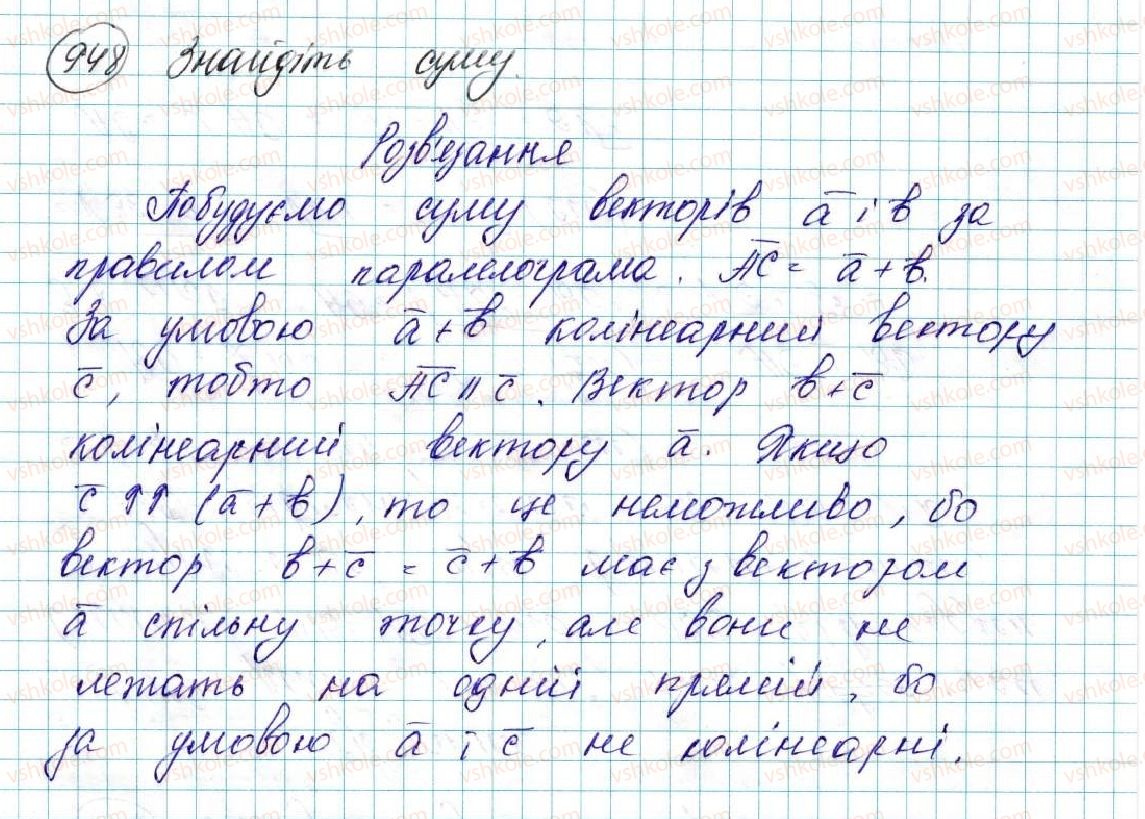 948 Знайдіть суму.
Розв'язання
Побудуємо суму векторів a̅ і b̅ за
правилом паралелограма. A̅C̅ = a̅ + b̅.
За умовою a̅ + b̅ колінеарний вектору
c̅, тобто A̅C̅ || c̅. Вектор b̅ + c̅
колінеарний вектору a̅. Якщо
c̅ ↑↑ (a̅ + b̅), то це неможливо, бо
вектор b̅ + c̅ = c̅ + b̅ має з вектором
a̅ спільну точку, але вони не
лежать на одній прямій, бо
за умовою a̅ і c̅ не колінеарні.